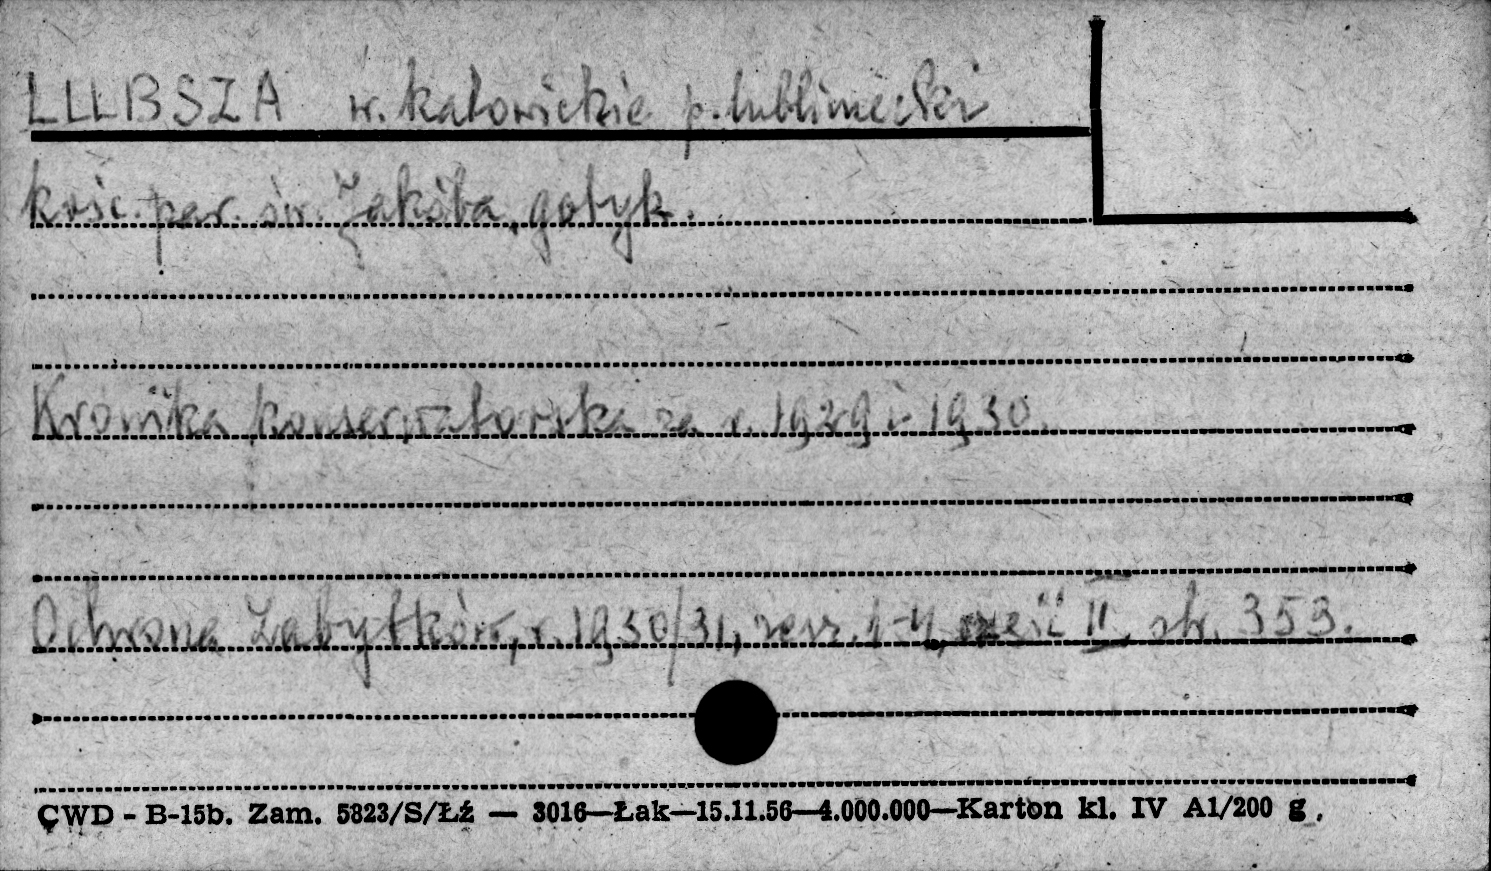 LUBSZA w. katowickie p. lubliniecki
kośc. par. św. Jakóba, gotyk.
Kronika konserwatorska za r. 1929 i 1930.
Ochrona Zabytków, r. 1930/31, zesz. 1-4, część II, str. 353.
CWD - B-15b. Zam. 5823/S/Łź — 3016—Łak—15.11.56—4.000.000—Karton kl. IV A1/200 g.